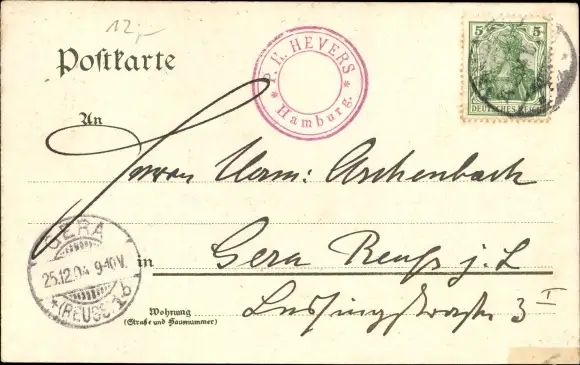 12,-
Postkarte
P. H. HEVERS
* Hamburg. *
5 5
DEUTSCHES REICH
An
Herrn Herm: Aschenbach
in Gera Reuß j. L.
GERA
25.12.04 9-10V.
*(REUSS) 1b
Wohnung
(Straße und Hausnummer)
Lessingstraße 3 I